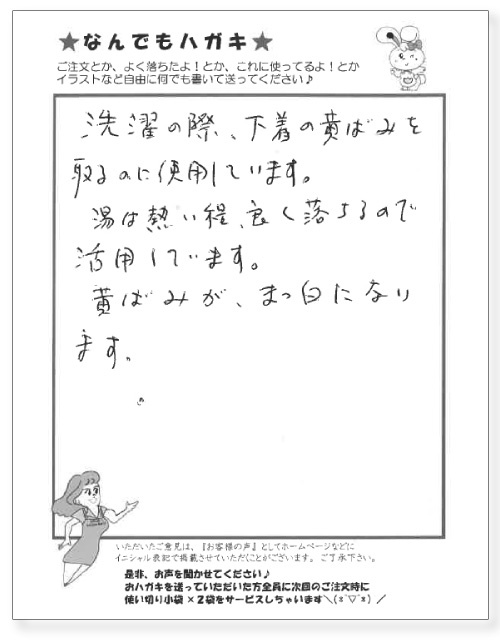 ★なんでもハガキ★
ご注文とか、よく落ちたよ！とか、これに使ってるよ！とか
イラストなど自由に何でも書いて送ってください♪
洗濯の際、下着の黄ばみを
取るのに使用しています。
湯は熱い程、良く落ちるので
活用しています。
黄ばみが、まっ白になり
ます。
いただいたご意見は、『お客様の声』としてホームページなどに
イニシャル表記で掲載させていただくことがございます。ご了承下さい。
是非、お声を聞かせてください♪
おハガキを送っていただいた方全員に次回のご注文時に
使い切り小袋×２袋をサービスしちゃいます＼(≧▽≦)／